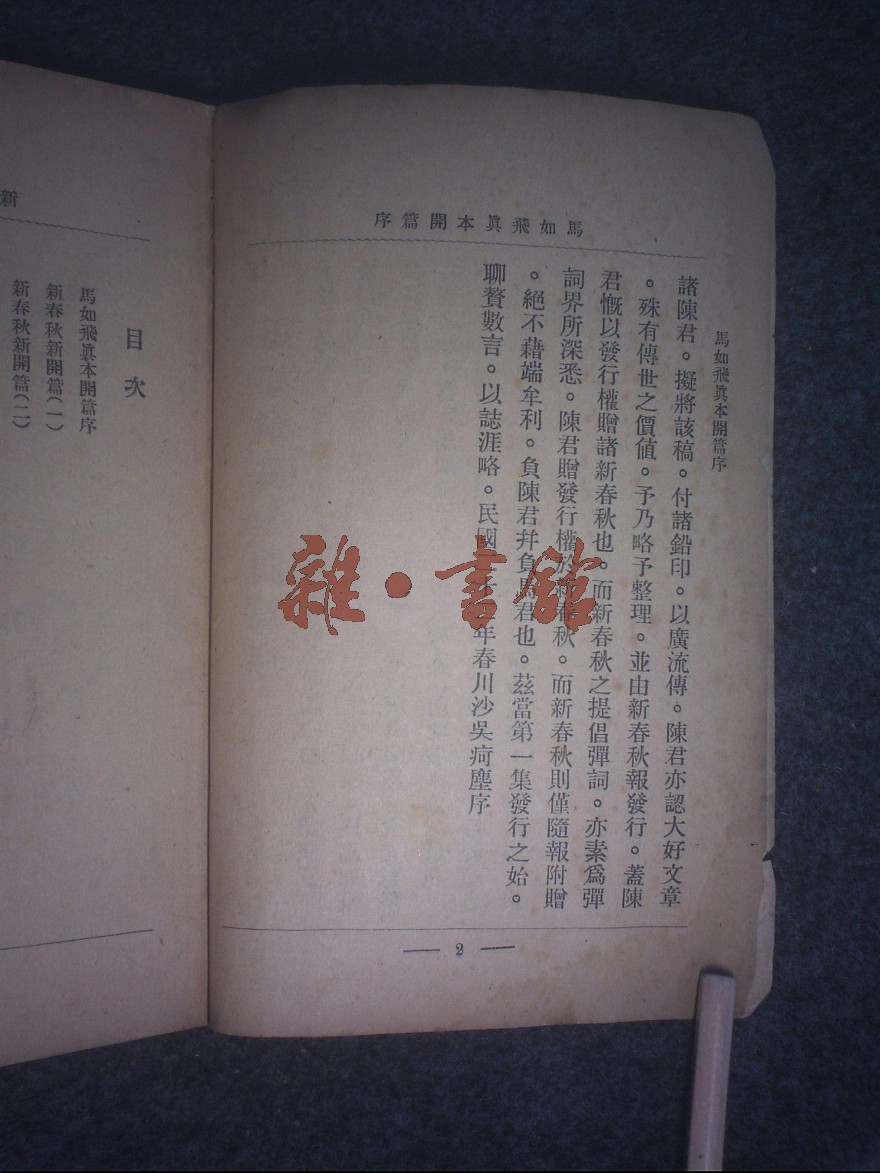 馬如飛眞本開篇序
馬如飛眞本開篇序
諸陳君。擬將該稿。付諸鉛印。以廣流傳。陳君亦認大好文章
。殊有傳世之價値。予乃略予整理。並由新春秋報發行。蓋陳
君慨以發行權贈諸新春秋也。而新春秋之提倡彈詞。亦素爲彈
詞界所深悉。陳君贈發行權於新春秋。而新春秋則僅隨報附贈
。絕不藉端牟利。負陳君幷負馬君也。茲當第一集發行之始。
聊贅數言。以誌涯略。民國二十年春川沙吳疴塵序
— 2 —
新
目次
馬如飛眞本開篇序
新春秋新開篇(一)
新春秋新開篇(二)
雜·書館